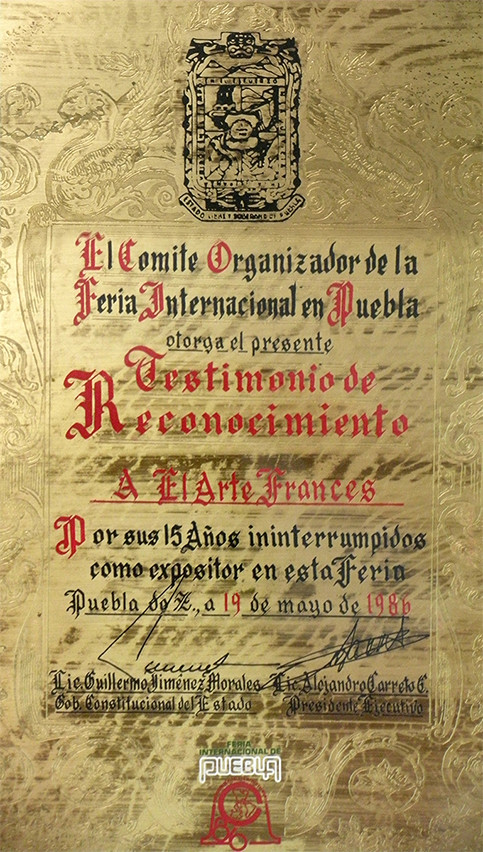 ESTADO LIBRE Y SOBERANO DE PUEBLA
El Comite Organizador de la
Feria Internacional en Puebla
otorga el presente
Testimonio de
Reconocimiento
A El Arte Frances
Por sus 15 Años ininterrumpidos
como expositor en esta Feria
Puebla de Z., a 19 de mayo de 1986
Lic. Guillermo Jiménez Morales
Gob. Constitucional del Estado
Lic. Alejandro Carreto G.
Presidente Ejecutivo
FERIA
INTERNACIONAL DE
PUEBLA